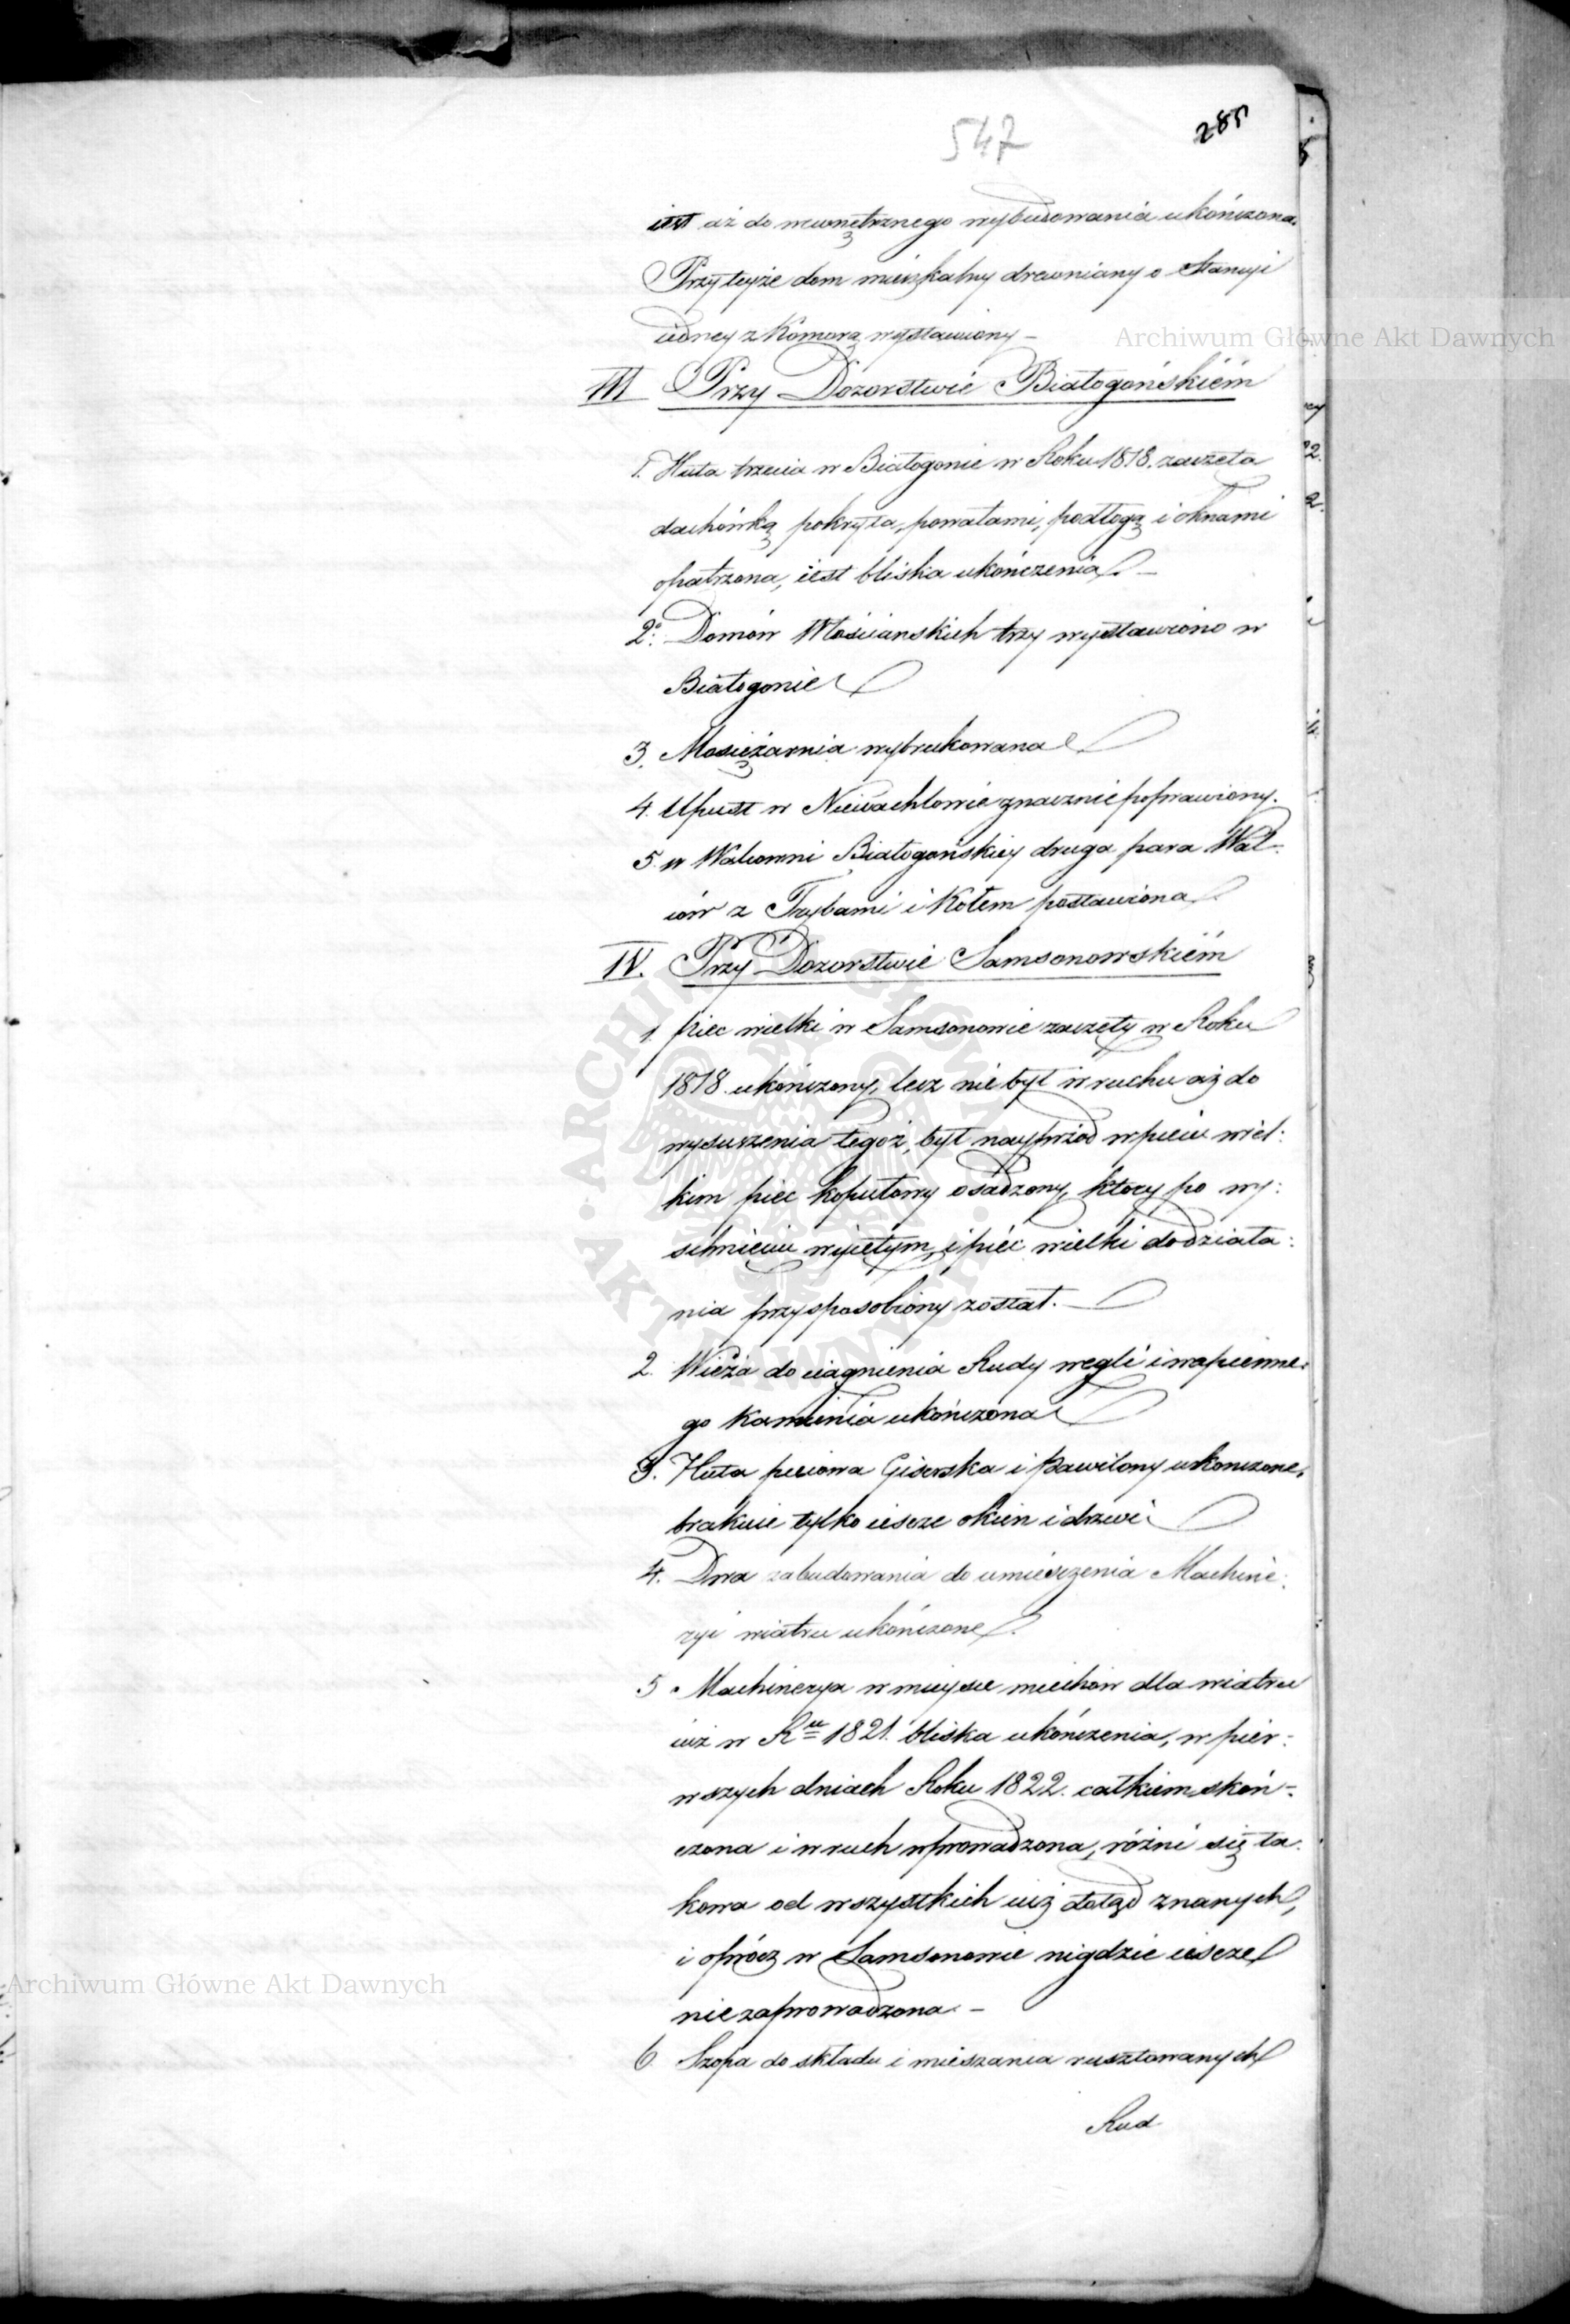 547
285
iest aż do wewnętrznego wybudowania ukończona.
Przy teyże dom mieszkalny drewniany o Stancyi
iedney z Komorą wystawiony –
III Przy Dozorstwie Białogońskiém
1. Huta trzecia w Białogonie w Roku 1818. zaczęta
dachówką pokryta, powałami, podłogą i oknami
opatrzona, iest bliska ukończenia. –
2o: Domów Włościanskich trzy wystawiono w
Białogonie
3. Mosiężarnia wybrukowana
4. Upust w Niewachlowie znacznie poprawiony.
5. w Walcowni Białogońskiey druga para Wal-
ców z Trybami i Kołem postawiona.
IV. Przy Dozorstwie Samsonowskiém
1. piec wielki w Samsonowie zaczęty w Roku
1818. ukończony, lecz nie był w ruchu aż do
wysuszenia tegoż, był nayprzód w piecu wiel:
kim piec kopułowy osadzony, ktory po wy:
schnieciu wyiętym, i piéc wielki do działa:
nia przysposobiony został. –
2. Wieża do ciagnienia Rudy węgli i wapienne:
go Kamienia ukończona
3. Huta piecowa Giserska i Pawilony ukonczone,
brakuie tylko iescze okien i drzwi
4. Dwa zabudowania do umiesczenia Machine:
ryi wiatru ukończone.
5. Machinerya w mieysce miechów dla wiatru
iuż w Ru 1821. bliska ukończenia, w pier:
wszych dniach Roku 1822. całkiem skoń-
czona i w ruch wprowadzona, różni się ta:
kowa od wszystkich iuż dotąd znanych,
i oprócz w Samsonowie nigdzie iescze
nie zaprowadzona. –
6 Szopa do składu i mieszania rusztowanych
Rud
Archiwum Główne Akt Dawnych
Archiwum Główne Akt Dawnych
ARCHIWUM GŁÓWNE AKT DAWNYCH